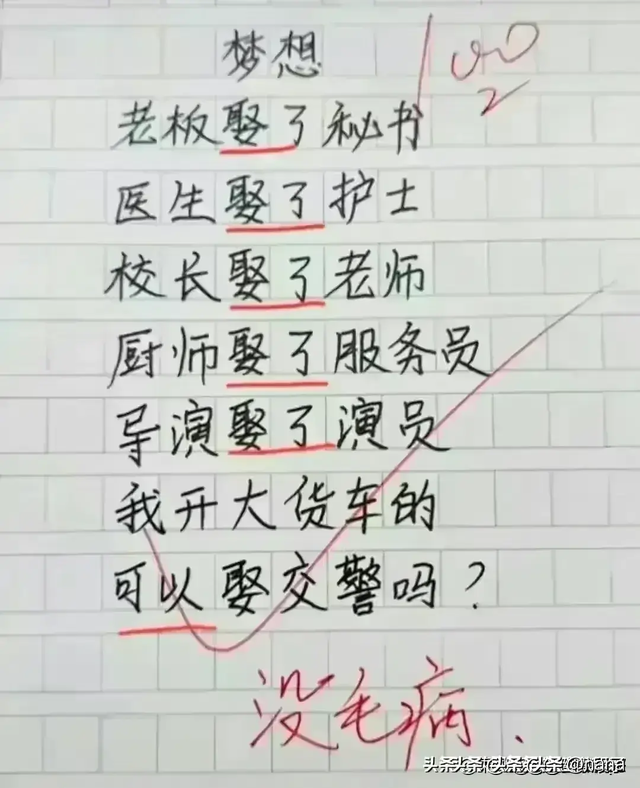 梦想
100
老板娶了秘书
医生娶了护士
校长娶了老师
厨师娶了服务员
导演娶了演员
我开大货车的
可以娶交警吗?
没毛病.